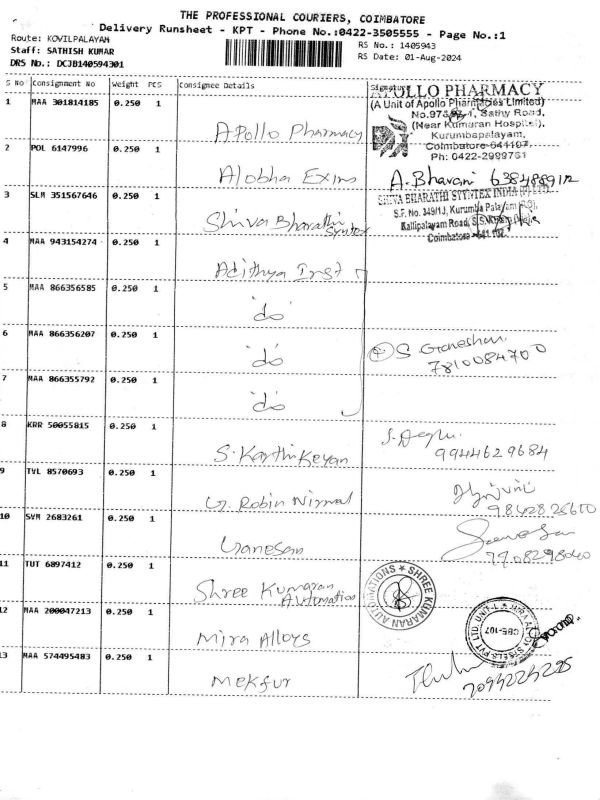 THE PROFESSIONAL COURIERS, COIMBATORE
Delivery Runsheet - KPT - Phone No.:0422-3505555 - Page No.:1
Route: KOVILPALAYAM
Staff: SATHISH KUMAR
DRS No.: DCJB140594301
RS No.: 1405943
RS Date: 01-Aug-2024
S No Consignment No Weight PCS Consignee Details Signature
1 MAA 301814185 0.250 1 Apollo Pharmacy
APOLLO PHARMACY
(A Unit of Apollo Pharmacies Limited)
Sathy Road,
(Near Kumaran Hospital),
Kurumbapalayam,
Coimbatore-641107,
Ph: 0422-2999751
2 POL 6147996 0.250 1 Alobha Exim
A. Bhavani 6384889112
3 SLM 351567646 0.250 1 Shiva Bharathi Syntex
SHIVA BHARATHI SYNTEX INDIA (P) LTD.
S.F. No. 349/1J, Kurumba Palayam
Kallipalayam Road,
Coimbatore - 641 107.
4 MAA 943154274 0.250 1 Adithya Inst
5 MAA 866356585 0.250 1 "do"
6 MAA 866356207 0.250 1 "do"
S Ganeshan
7810084700
7 MAA 866355792 0.250 1 "do"
8 KRR 50055815 0.250 1 S. Karthikeyan
9944629684
9 TVL 8570693 0.250 1 G. Robin Nirmal
9842825650
10 SVM 2683261 0.250 1 Ganesan
11 TUT 6897412 0.250 1 Shree Kumaran Automation
SHREE KUMARAN AUTOMATIONS
12 MAA 200047213 0.250 1 Mira Alloys
CBE-107
13 MAA 574495483 0.250 1 Mekfur